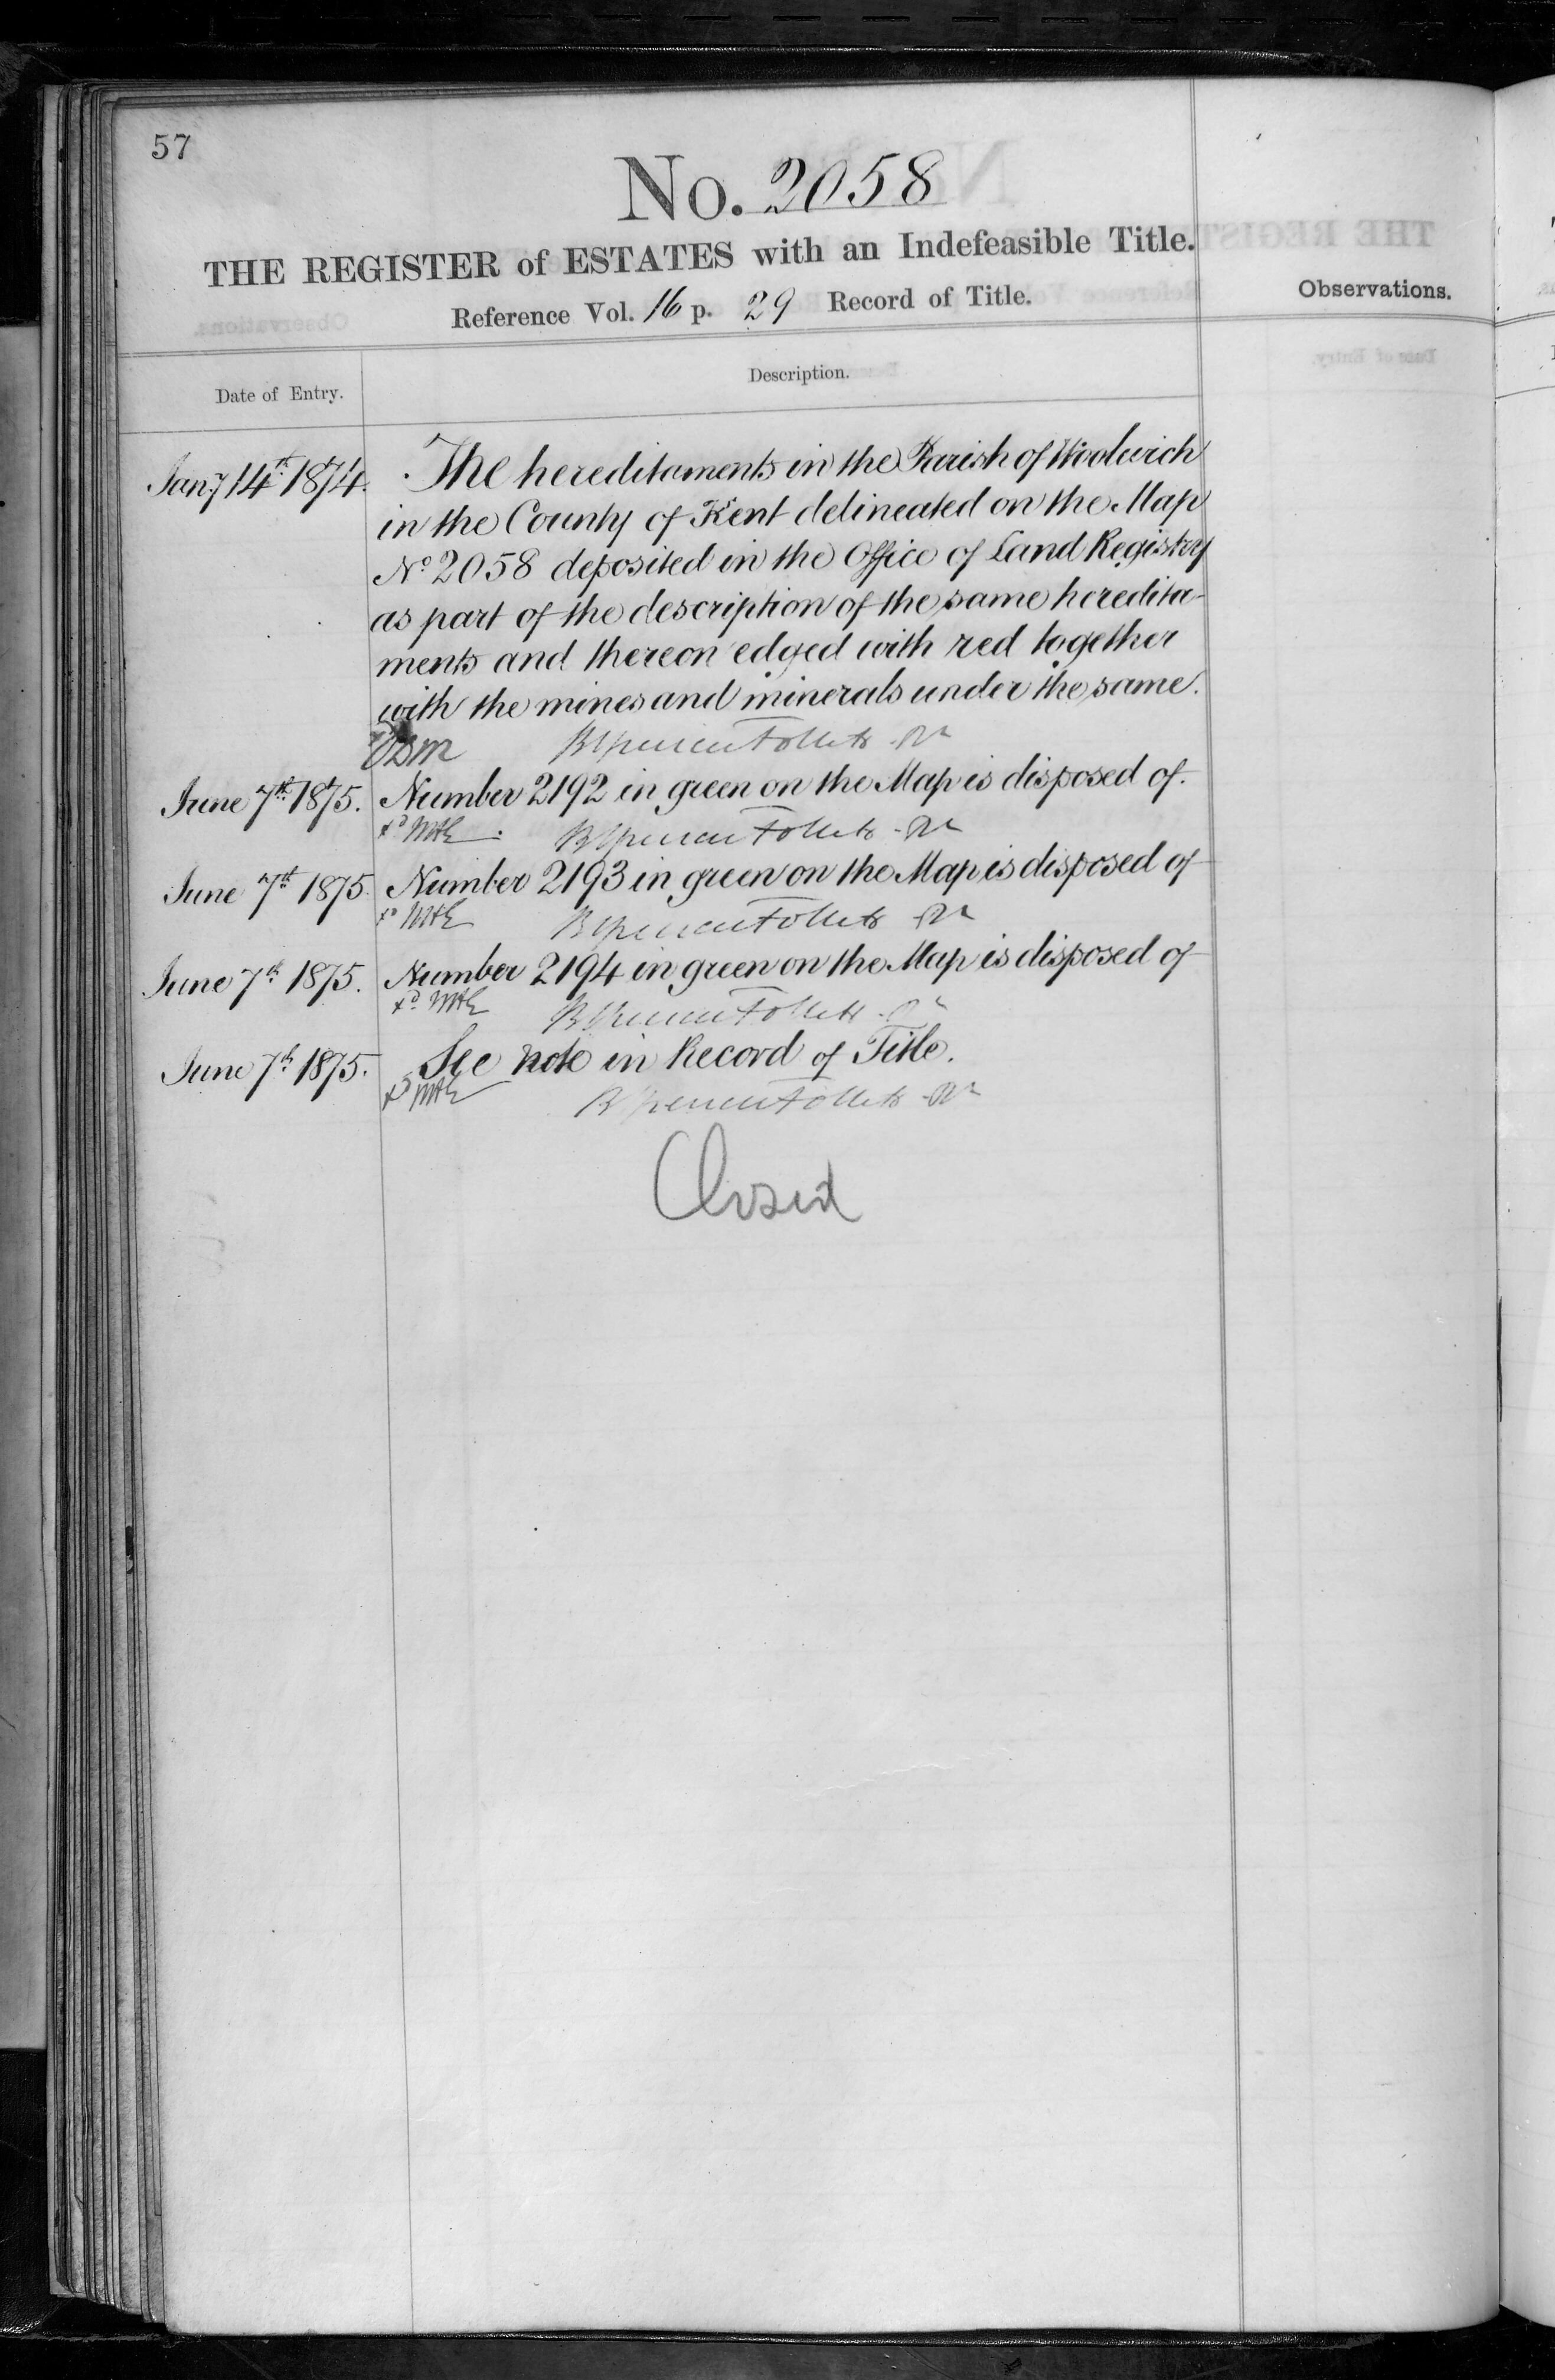 57
No. 2058
THE REGISTER of ESTATES with an Indefeasible Title.
Reference Vol. 16 p. 29 Record of Title.
Observations.
Date of Entry.
Description.
Jany 14th 1874. The hereditaments in the Parish of Woolwich
in the County of Kent delineated on the Map
No 2058 deposited in the Office of Land Registry
as part of the description of the same heredita-
ments and thereon edged with red together
with the mines and minerals under the same.
Brent Spencer Follett
June 7th 1875. Number 2192 in green on the Map is disposed of.
June 7th 1875. Number 2193 in green on the Map is disposed of
June 7th 1875. Number 2194 in green on the Map is disposed of
June 7th 1875. See note in Record of Title.
Closed